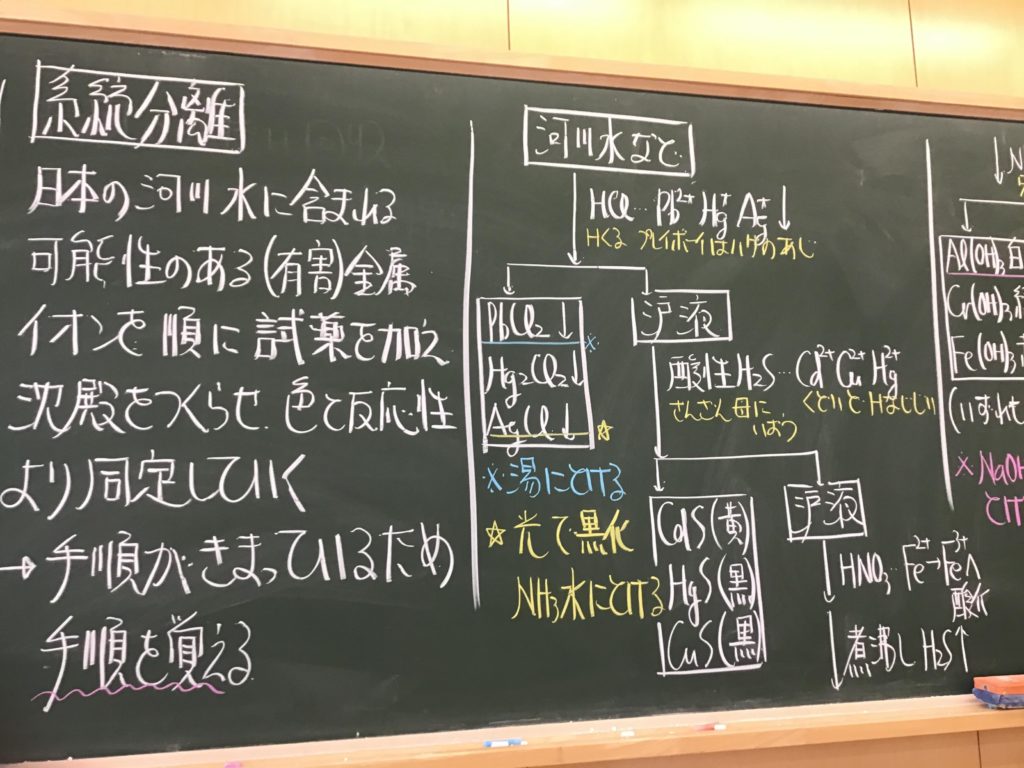 系統分離
日本の河川水に含まれる
可能性のある(有害)金属
イオンを順に試薬を加え
沈殿をつくらせ 色と反応性
より同定していく
→手順がきまっているため
手順を覚える
河川水など
HCl… Pb²⁺ Hg⁺ Ag⁺ ↓
Hくる プレイボーイはハゲのあし
PbCl₂↓ ※
Hg₂Cl₂↓
AgCl↓ ☆
※湯にとける
☆光で黒化
NH₃水にとける
沪液
酸性H₂S… Cd²⁺ Cu²⁺ Hg²⁺
さんさん母に
いおう
くどいと Hはじしい
CdS(黄)
HgS(黒)
CuS(黒)
沪液
HNO₃… Fe²⁺→Fe³⁺へ
酸化
煮沸しH₂S↑
↓N
Al(OH)₃白
Cr(OH)₃緑
Fe(OH)₃
(いずれも
※NaOH
とけ